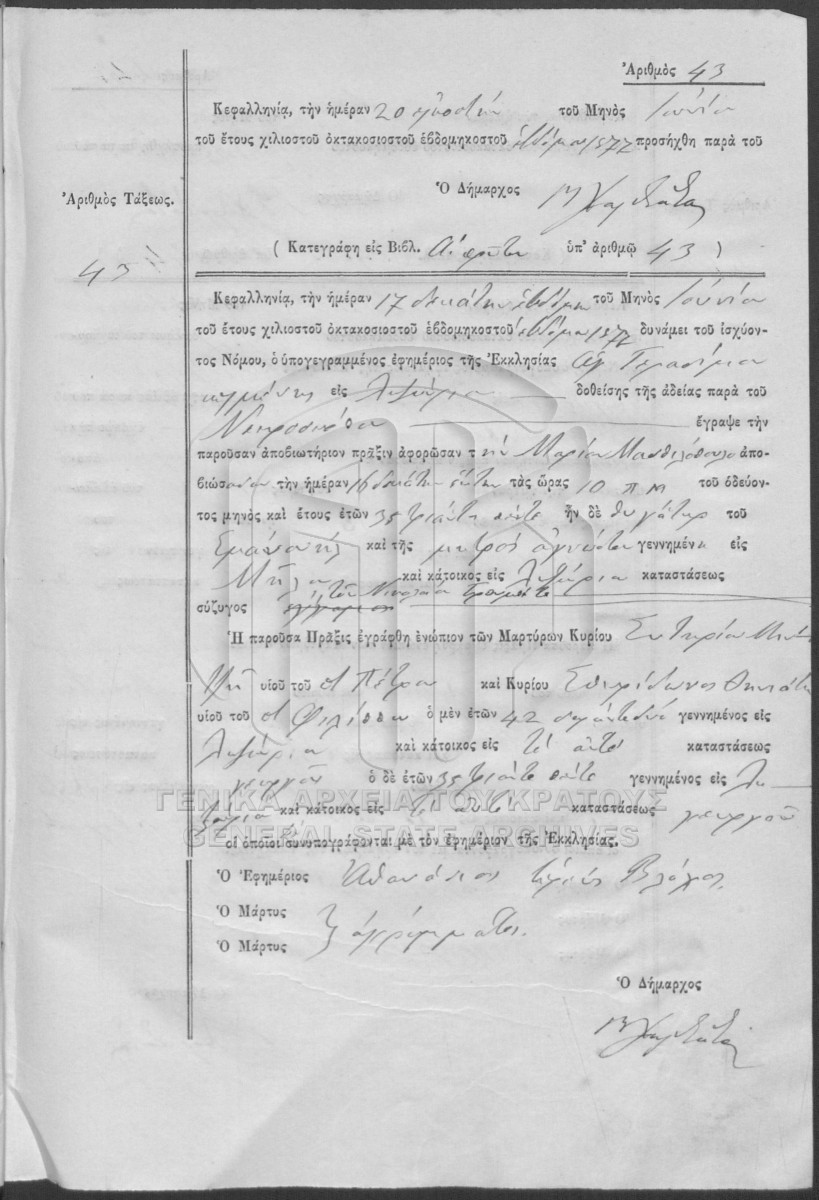 Ἀριθμὸς 43
Κεφαλληνίᾳ, τὴν ἡμέραν 20 εἰκοστὴν τοῦ Μηνὸς Ἰουνίου
τοῦ ἔτους χιλιοστοῦ ὀκτακοσιοστοῦ ἑβδομηκοστοῦ ἑβδόμου 1877 προσήχθη παρὰ τοῦ
Ὁ Δήμαρχος
Ἀριθμὸς Τάξεως.
( Κατεγράφη εἰς Βιβλ. ὑπ' ἀριθμῷ 43 )
43
Κεφαλληνίᾳ, τὴν ἡμέραν 17 δεκάτην ἑβδόμην τοῦ Μηνὸς Ἰουνίου
τοῦ ἔτους χιλιοστοῦ ὀκτακοσιοστοῦ ἑβδομηκοστοῦ ἑβδόμου 1877 δυνάμει τοῦ ἰσχύον-
τος Νόμου, ὁ ὑπογεγραμμένος ἐφημέριος τῆς Ἐκκλησίας Ἁγ Γερασίμου
κειμένης εἰς Ληξούριον δοθείσης τῆς ἀδείας παρὰ τοῦ
ἔγραψε τὴν
παροῦσαν ἀποβιωτήριον πρᾶξιν ἀφορῶσαν τ ὴν Μαρίαν ἀπο-
βιώσασαν τὴν ἡμέραν 16 δεκάτην ἕκτην τὰς ὥρας 10 π μ τοῦ ὁδεύον-
τος μηνὸς καὶ ἔτους ἐτῶν 35 τριάντα πέντε ἦν δὲ θυγάτηρ τοῦ
Ἐμανουὴλ καὶ τῆς μητρὸς ἀγνώστου γεννημένη εἰς
Μῆλον καὶ κάτοικος εἰς Ληξούριον καταστάσεως
σύζυγος τοῦ Νικολάου
Ἡ παροῦσα Πρᾶξις ἐγράφθη ἐνώπιον τῶν Μαρτύρων Κυρίου Σωτηρίου
υἱοῦ τοῦ Πέτρου καὶ Κυρίου Σπυρίδωνος
υἱοῦ τοῦ Φιλίππου ὁ μὲν ἐτῶν 42 σαράντα δύο γεννημένος εἰς
Ληξούριον καὶ κάτοικος εἰς τὸ αὐτὸ καταστάσεως
γεωργοῦ ὁ δὲ ἐτῶν 35 τριάντα πέντε γεννημένος εἰς Λη-
ξούριον καὶ κάτοικος εἰς τὸ αὐτὸ καταστάσεως γεωργοῦ
οἱ ὁποῖοι συνυπογράφονται μὲ τὸν ἐφημέριον τῆς Ἐκκλησίας.
ΓΕΝΙΚΑ ΑΡΧΕΙΑ ΤΟΥ ΚΡΑΤΟΥΣ
GENERAL STATE ARCHIVES
Ὁ Ἐφημέριος Ἀθανάσιος ἱερεὺς
Ὁ Μάρτυς
Ὁ Μάρτυς ἀγράμματοι.
Ὁ Δήμαρχος